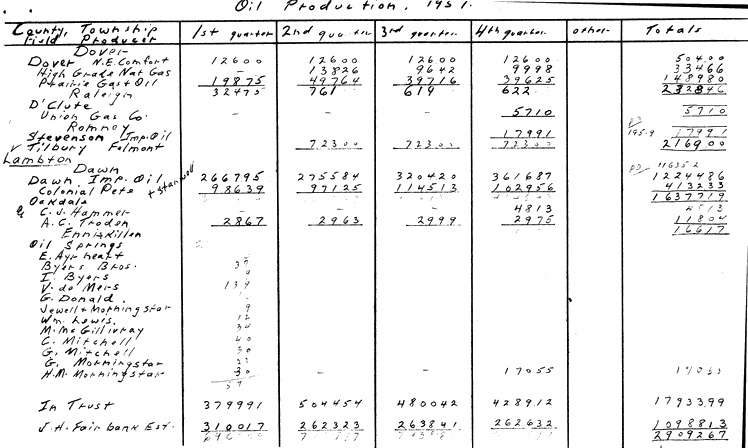 Oil Production, 1951.
County, Township Field Producer 1st quarter 2nd quarter 3rd quarter 4th quarter other Totals
Dover
Dover N.E. Comfort 12600 12600 12600 12600 50400
High Grade Nat Gas - 13826 9642 9998 33466
Prairie Gas + Oil 19875 49764 39716 39625 148980
Raleigh 32475 761 619 622 232846
D'Clute
Union Gas Co. 5710 5710
Romney
Stevenson Imp. Oil 17991 195-9 17991
Tilbury Falmont 72300 72300 72300 216900
Lambton
Dawn
Dawn Imp. Oil 266795 275584 320420 361687 1224486
Colonial Pets 98639 97125 114513 102956 413233
Oakdale 1637719
C. J. Hammer - - - 4813 4813
A. C. Troden 2867 2963 2999 2975 11804
Enniskillen 16617
Oil Springs
E. Ayrheart
Byers Bros.
I. Byers
V. de Mers
G. Donald
Jewell + Morningstar 9
Wm. Lewis 12
M. McGillivray 34
C. Mitchell 40
G. Mitchell 30
G. Morningstar
H.M. Morningstar 30 - - 17055 17055
In Trust 379991 504454 480042 428912 1793399
J. H. Fairbank Est. 310017 262323 263841 262632 1098813
2909267